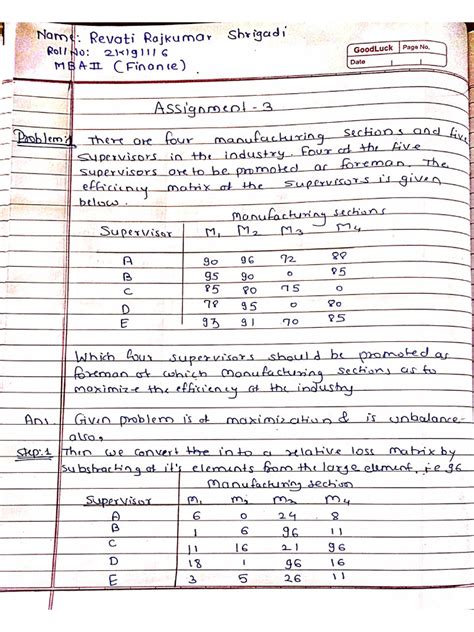 Name: Revati Rajkumar Shrigadi
Roll No: 21x191116
MBA II (Finance)
GoodLuck Page No.
Date
Assignment - 3
Problem:1 There are four manufacturing sections and five
supervisors in the industry. Four of the five
supervisors are to be promoted as foreman. The
efficiency matrix of the supervisors is given
below.
Manufacturing sections
Supervisor M1 M2 M3 M4
A 90 96 72 88
B 95 90 0 85
C 85 80 75 0
D 78 95 0 80
E 93 91 70 85
Which four supervisors should be promoted as
foreman of which manufacturing sections as to
maximize the efficiency of the industry
Ans. Given problem is of maximization & is unbalance-
also,
Step:1 Then we convert the into a relative loss matrix by
substracting of it's elements from the large element, i.e 96
Manufacturing section
Supervisor M1 M2 M3 M4
A 6 0 24 8
B 1 6 96 11
C 11 16 21 96
D 18 1 96 16
E 3 5 26 11